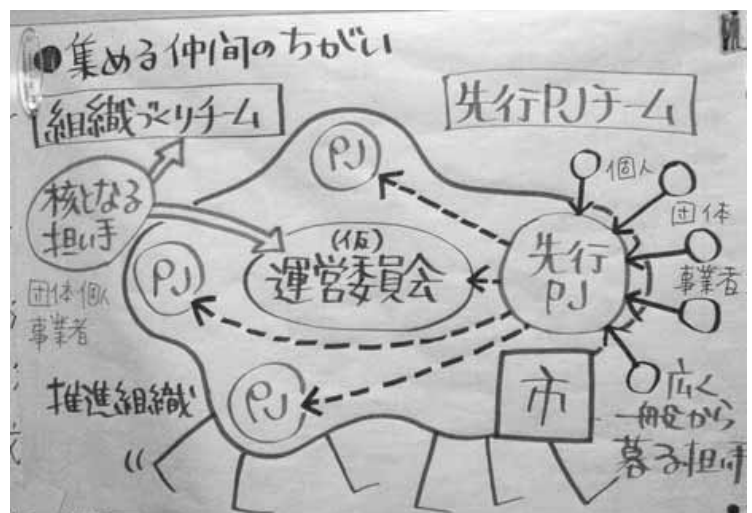 ●集める仲間のちがい
組織づくりチーム
先行PJチーム
核となる
担い手
団体個人
事業者
PJ
PJ
PJ
(仮)
運営委員会
先行
PJ
個人
団体
事業者
市
推進組織
広く
一般から
募る担い手